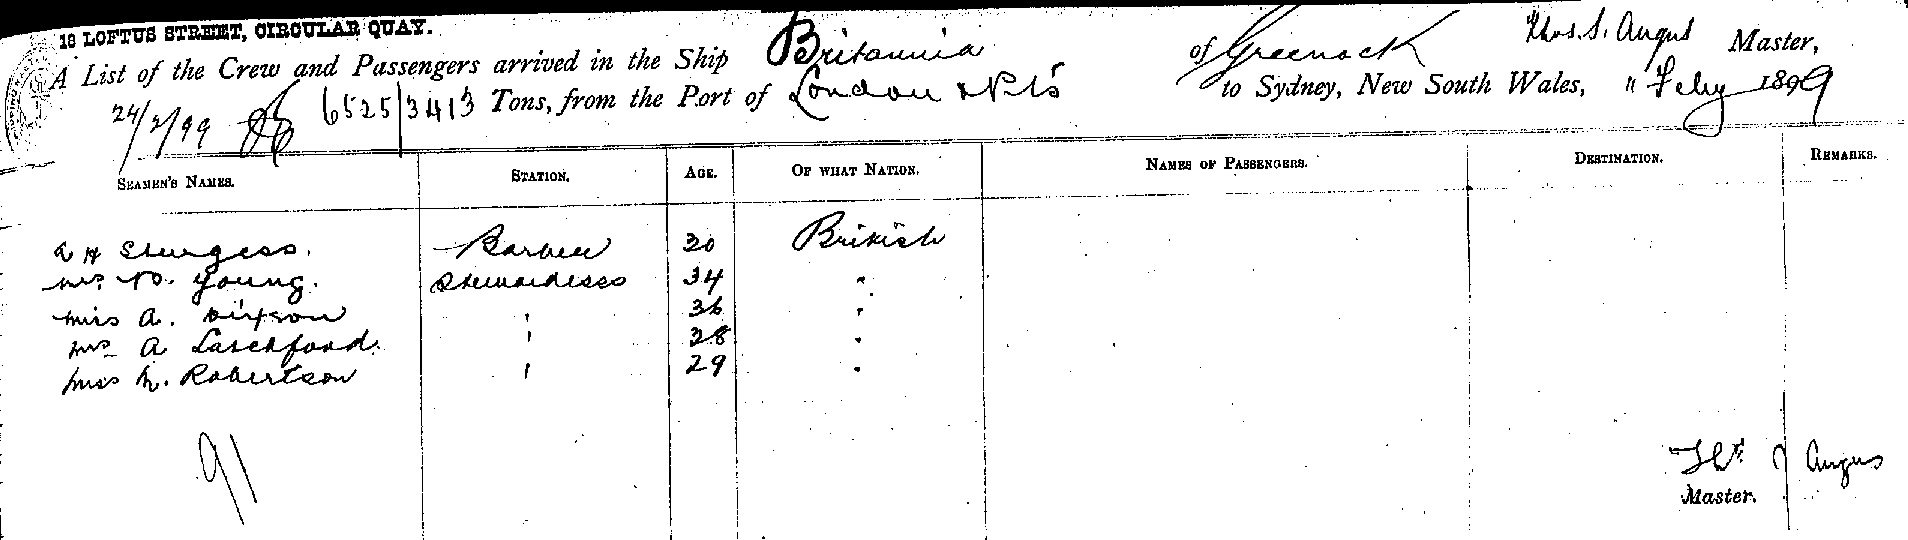 18 LOFTUS STREET, CIRCULAR QUAY.
A List of the Crew and Passengers arrived in the Ship Britannia of Greenock Thos. S. Angus Master,
24/2/99 6525/3413 Tons, from the Port of London & Pts to Sydney, New South Wales, " Feby 1899
SEAMEN'S NAMES. STATION. AGE. OF WHAT NATION. NAMES OF PASSENGERS. DESTINATION. REMARKS.
A H Sturgess. Barber 30 British
Mrs. Young. Stewardess 34 "
Miss A. Dixson ' 36 "
Mrs A Latchford. ' 38 "
Miss M. Robertson ' 29 "
91
Angus
Master.